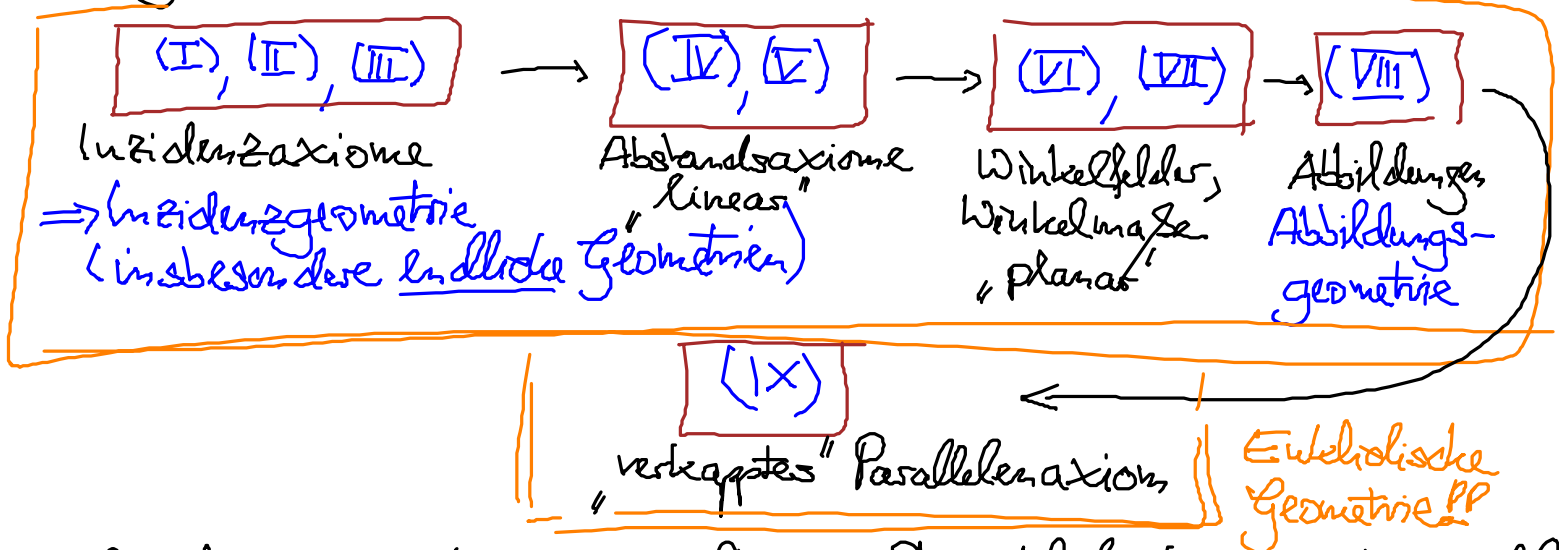 (I), (II), (III) → (IV), (V) → (VI), (VII) → (VIII)
Inzidenzaxiome
⇒ Inzidenzgeometrie
(insbesondere endliche Geometrien)
Abstandsaxiome
„linear"
Winkelfelder,
Winkelmaße
„planar"
Abbildungen
Abbildungs-
geometrie
(IX)
„verkapptes" Parallelenaxiom
Euklidische
Geometrie!!